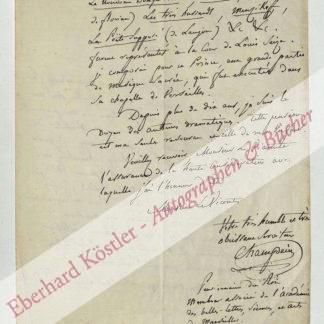 Le Nouveau Don
de florian) Les trois hussards,
La Porte (de
furent représentés à la Cour de Louis Seize.
composé pour ce Prince, une grande partie
de musique Sacrée, qui fut exécutée dans
sa chapelle de Versailles.
Depuis plus de dix ans, je suis le
Doyen des auteurs dramatiques;
et ma seule ressource
Veuillez recevoir Monsieur
l'assurance de la haute
laquelle j'ai l'honneur
le Vicomte
Votre très humble et très
obéissant Serviteur
Champein
Pensionnaire du Roi
Membre associé de l'académie
des belles-lettres, sciences, et arts
de Marseille.
Eberhard Köstler - Autographen & Bücher